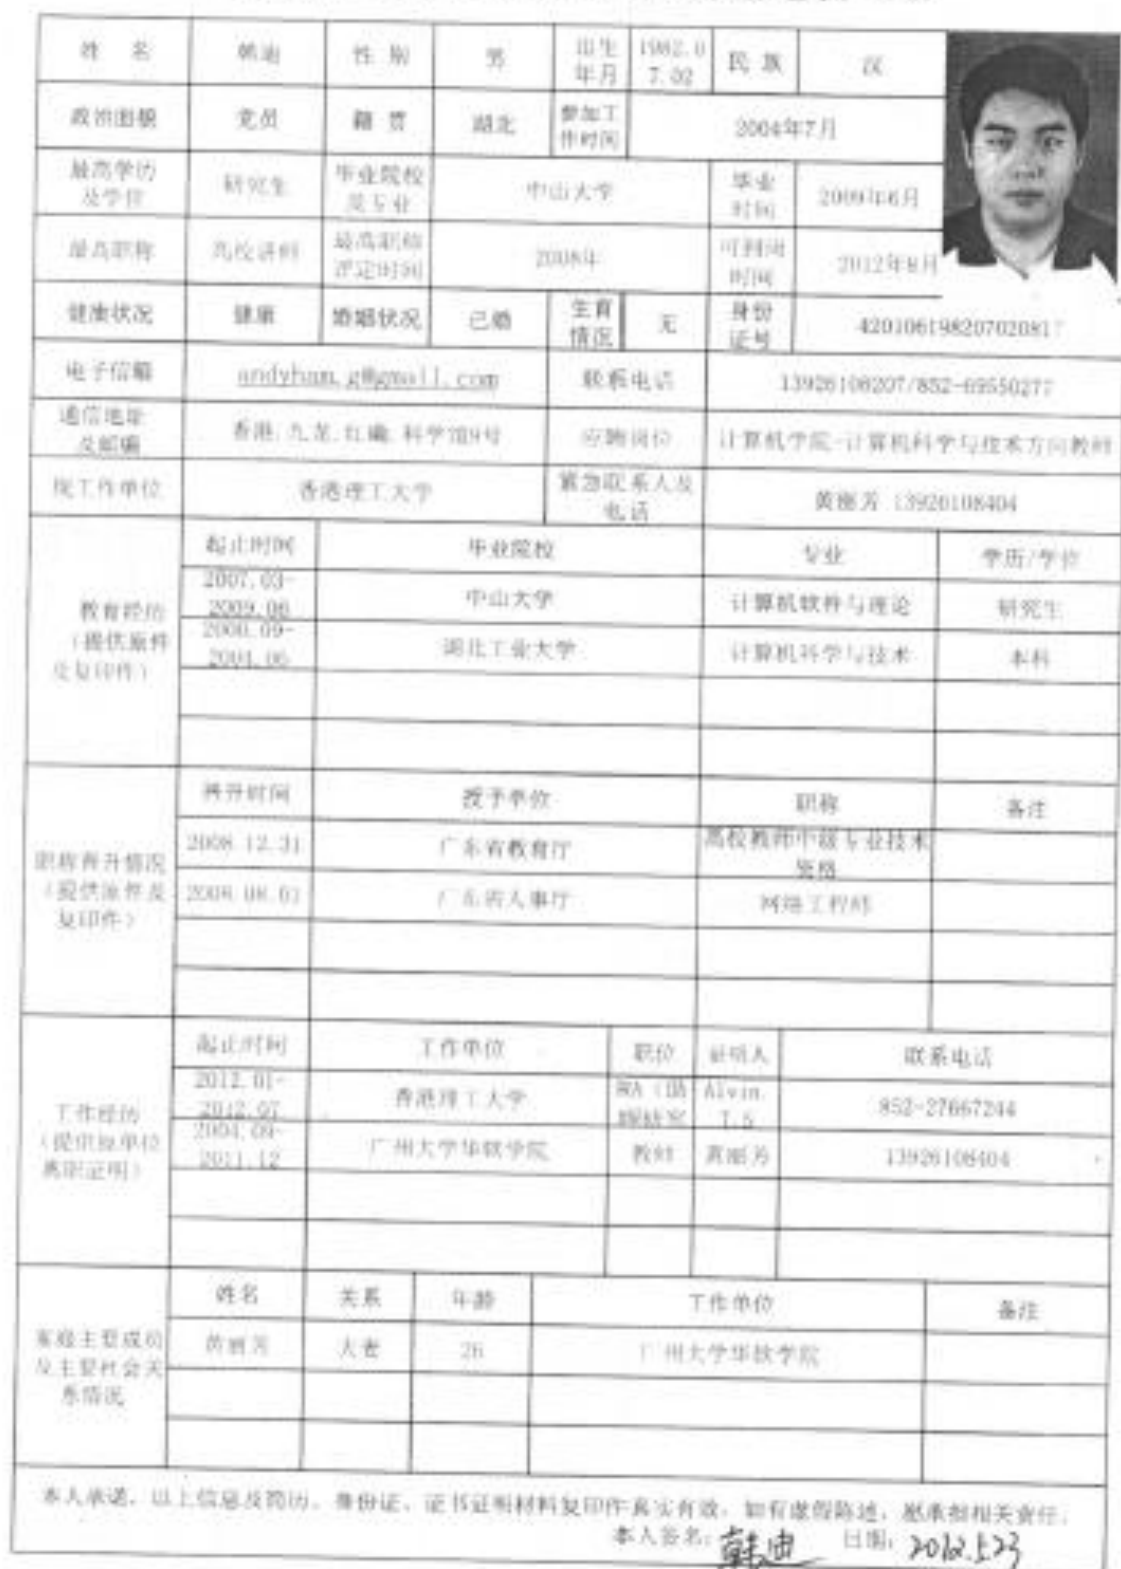 姓 名 韩迪 性 别 男 出生年月 1982.07.02 民 族 汉
政治面貌 党员 籍 贯 湖北 参加工作时间 2004年7月
最高学历及学位 研究生 毕业院校及专业 中山大学 毕业时间 2009年6月
最高职称 高校讲师 最高职称评定时间 2008年 可到岗时间 2012年8月
健康状况 健康 婚姻状况 已婚 生育情况 无 身份证号
电子信箱 联系电话
通信地址及邮编 香港.九龙.红磡.科学馆9号 应聘岗位 计算机学院-计算机科学与技术方向教师
现工作单位 香港理工大学 紧急联系人及电话 黄丽芳 13926108404
教育经历（提供原件及复印件）
起止时间 毕业院校 专业 学历/学位
2007.03-2009.06 中山大学 计算机软件与理论 研究生
2000.09-2004.06 湖北工业大学 计算机科学与技术 本科
职称晋升情况（提供原件及复印件）
晋升时间 授予单位 职称 备注
2008.12.31 广东省教育厅 高校教师中级专业技术资格
2008.08.01 广东省人事厅 网络工程师
工作经历（提供原单位离职证明）
起止时间 工作单位 职位 证明人 联系电话
2012.01-2012.07 香港理工大学 852-27667244
2004.09-2011.12 广州大学华软学院 教师 黄丽芳 13926108404
家庭主要成员及主要社会关系情况
姓名 关系 年龄 工作单位 备注
黄丽芳 夫妻 26 广州大学华软学院
本人承诺，以上信息及简历、身份证、证书证明材料复印件真实有效，如有虚假陈述，愿承担相关责任。
本人签名：韩迪 日期：2012.5.23